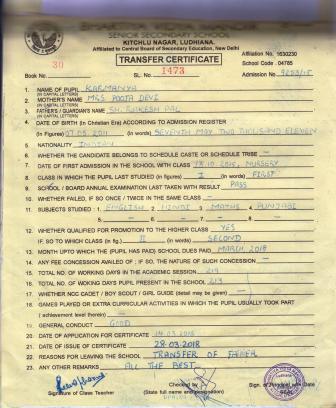 SENIOR SECONDARY SCHOOL
KITCHLU NAGAR, LUDHIANA.
Affiliated to Central Board of Secondary Education, New Delhi
Affiliation No. 1630230
TRANSFER CERTIFICATE
School Code : 04785
Book No. 30 SL. No. 1473 Admission No 9253/15
1. NAME OF PUPIL KARMANYA
(IN CAPITAL LETTERS)
2. MOTHER'S NAME MRS. POOJA DEVI
(IN CAPITAL LETTERS)
3. FATHER'S / GUARDIAN'S NAME SH. RAKESH PAL
(IN CAPITAL LETTERS)
4. DATE OF BIRTH (in Christian Era) ACCORDING TO ADMISSION REGISTER
(in Figures) 07.05.2011 (in words) SEVENTH MAY TWO THOUSAND ELEVEN
5. NATIONALITY INDIAN
6. WHETHER THE CANDIDATE BELONGS TO SCHEDULE CASTE OR SCHEDULE TRIBE —
7. DATE OF FIRST ADMISSION IN THE SCHOOL WITH CLASS 2015, NURSERY
8. CLASS IN WHICH THE PUPIL LAST STUDIED (in figures) I (in words) FIRST
9. SCHOOL / BOARD ANNUAL EXAMINATION LAST TAKEN WITH RESULT PASS
10. WHETHER FAILED, IF SO ONCE / TWICE IN THE SAME CLASS —
11. SUBJECTS STUDIED : 1. ENGLISH 2. HINDI 3. MATHS 4. PUNJABI
5. — 6. — 7. — 8. —
12. WHETHER QUALIFIED FOR PROMOTION TO THE HIGHER CLASS YES
IF, SO TO WHICH CLASS (in fig.) II (in words) SECOND
13. MONTH UPTO WHICH THE (PUPIL HAS PAID) SCHOOL DUES PAID MARCH, 2018
14. ANY FEE CONCESSION AVAILED OF : IF SO, THE NATURE OF SUCH CONCESSION —
15. TOTAL NO. OF WORKING DAYS IN THE ACADEMIC SESSION 219
16. TOTAL NO. OF WORKING DAYS PUPIL PRESENT IN THE SCHOOL 213
17. WHETHER NCC CADET / BOY SCOUT / GIRL GUIDE (detail may be given) —
18. GAMES PLAYED OR EXTRA CURRICULAR ACTIVITIES IN WHICH THE PUPIL USUALLY TOOK PART
( achievement level therein) —
19. GENERAL CONDUCT GOOD
20. DATE OF APPLICATION FOR CERTIFICATE 03.2018
21. DATE OF ISSUE OF CERTIFICATE 28.03.2018
22. REASONS FOR LEAVING THE SCHOOL TRANSFER OF FATHER
23. ANY OTHER REMARKS ALL THE BEST
Signature of Class Teacher
Checked by
(State full name and designation)
Sign. of Principal with Date
SEAL